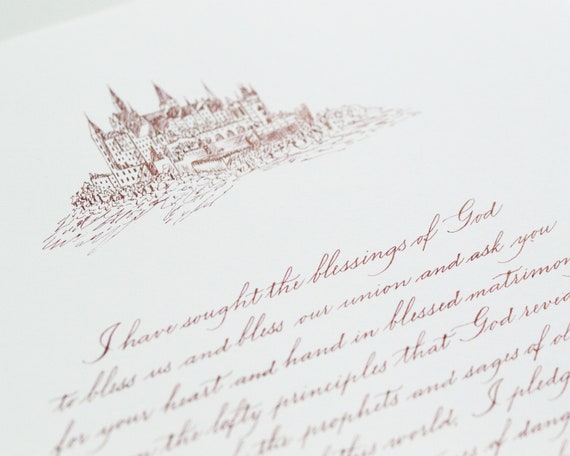 I have sought the blessings of God
to bless us and bless our union and ask you
for your heart and hand in blessed matrimon
the lofty principles that God revea
the prophets and sages of ol
this world. I pledg
of dang